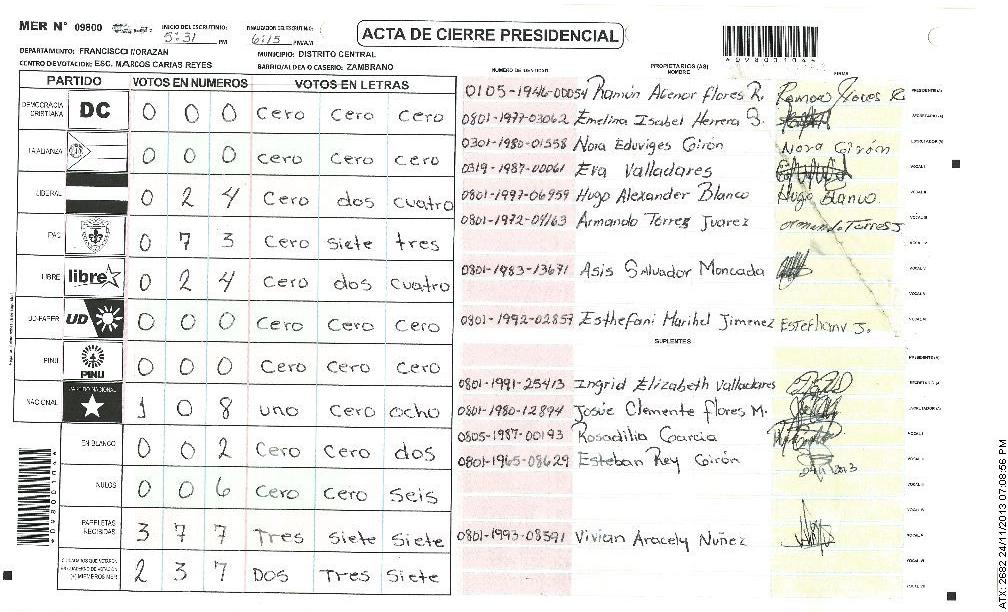 MER N° 09800
INICIO DEL ESCRUTINIO:
5:31 PM
FINALIZACION DEL ESCRUTINIO:
6:15 PM/A/M
ACTA DE CIERRE PRESIDENCIAL
0980010
DEPARTAMENTO: FRANCISCO MORAZAN
MUNICIPIO: DISTRITO CENTRAL
CENTRO DE VOTACION: ESC. MARCOS CARIAS REYES
BARRIO/ALDEA O CASERIO: ZAMBRANO
PARTIDO VOTOS EN NUMEROS VOTOS EN LETRAS
DEMOCRACIA CRISTIANA DC 0 0 0 Cero Cero Cero
LA ALIANZA 0 0 0 Cero Cero Cero
LIBERAL 0 2 4 Cero dos cuatro
PAC 0 7 3 Cero Siete tres
LIBRE libre 0 2 4 Cero dos cuatro
UD-FAPER UD 0 0 0 Cero Cero Cero
PINU PINU 0 0 0 Cero Cero Cero
NACIONAL PARTIDO NACIONAL 1 0 8 uno Cero ocho
EN BLANCO 0 0 2 Cero Cero dos
NULOS 0 0 6 Cero Cero Seis
PAPELETAS RECIBIDAS 3 7 7 Tres Siete Siete
2 3 7 DOS Tres Siete
NUMERO DE IDENTIDAD PROPIETARIOS (AS) NOMBRE FIRMA
0105-1946-00054 Ramón Agenor flores R. Ramon Flores R PRESIDENTE(A)
0801-1977-03062 Emelina Isabel Herrera S. SECRETARIO(A)
0301-1980-01558 Nora Eduviges Girón Nora Girón ESCRUTADOR(A)
0319-1987-00061 Eva Valladares VOCAL I
0801-1997-06959 Hugo Alexander Blanco Hugo Blanco. VOCAL II
0801-1972-09163 Armando Torres Juarez Armando Torres J VOCAL III
VOCAL IV
0801-1983-13671 Asis Salvador Moncada VOCAL V
0801-1992-02857 Esthefani Marihel Jimenez Estefhany J.
SUPLENTES
PRESIDENTE(A)
0801-1991-25413 Ingrid Elizabeth Valladares SECRETARIO(A)
0801-1980-12894 Josue Clemente flores M. ESCRUTADOR(A)
0805-1987-00193 Rosadilia Garcia VOCAL I
0801-1965-08629 Esteban Rey Girón
0801-1993-08591 Vivian Aracely Nuñez VOCAL V
ATX: 2682 24/11/2013 07:08:56 PM